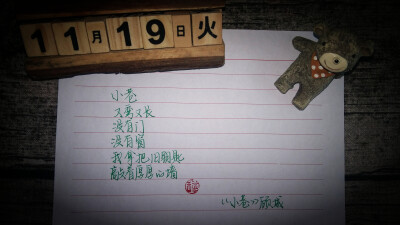 11月19日火
小巷
又弯又长
没有门
没有窗
我拿把旧钥匙
敲着厚厚的墙
《小巷》顾城